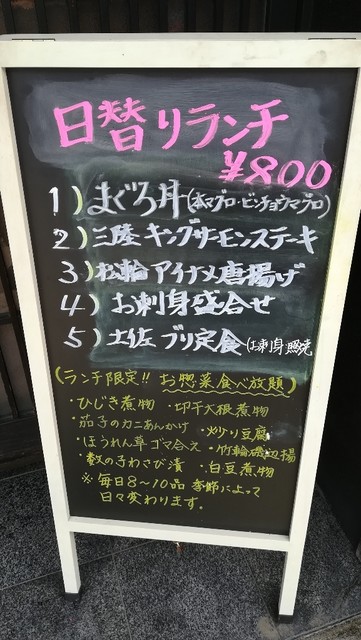 日替りランチ
¥800
1)まぐろ丼(本マグロ・ビンチョウマグロ)
2)三陸キングサーモンステキ
3)松輪アイナメ唐揚げ
4)お刺身盛合せ
5)土佐ブリ定食(お刺身、照焼
(ランチ限定!! お惣菜食べ放題)
・ひじき煮物 ・切干大根煮物
・茄子のカニあんかけ ・炒り豆腐
・ほうれん草ゴマ合え ・竹輪磯辺揚
・数の子わさび漬 ・白豆煮物
※毎日8〜10品 季節によって
日々変わります。